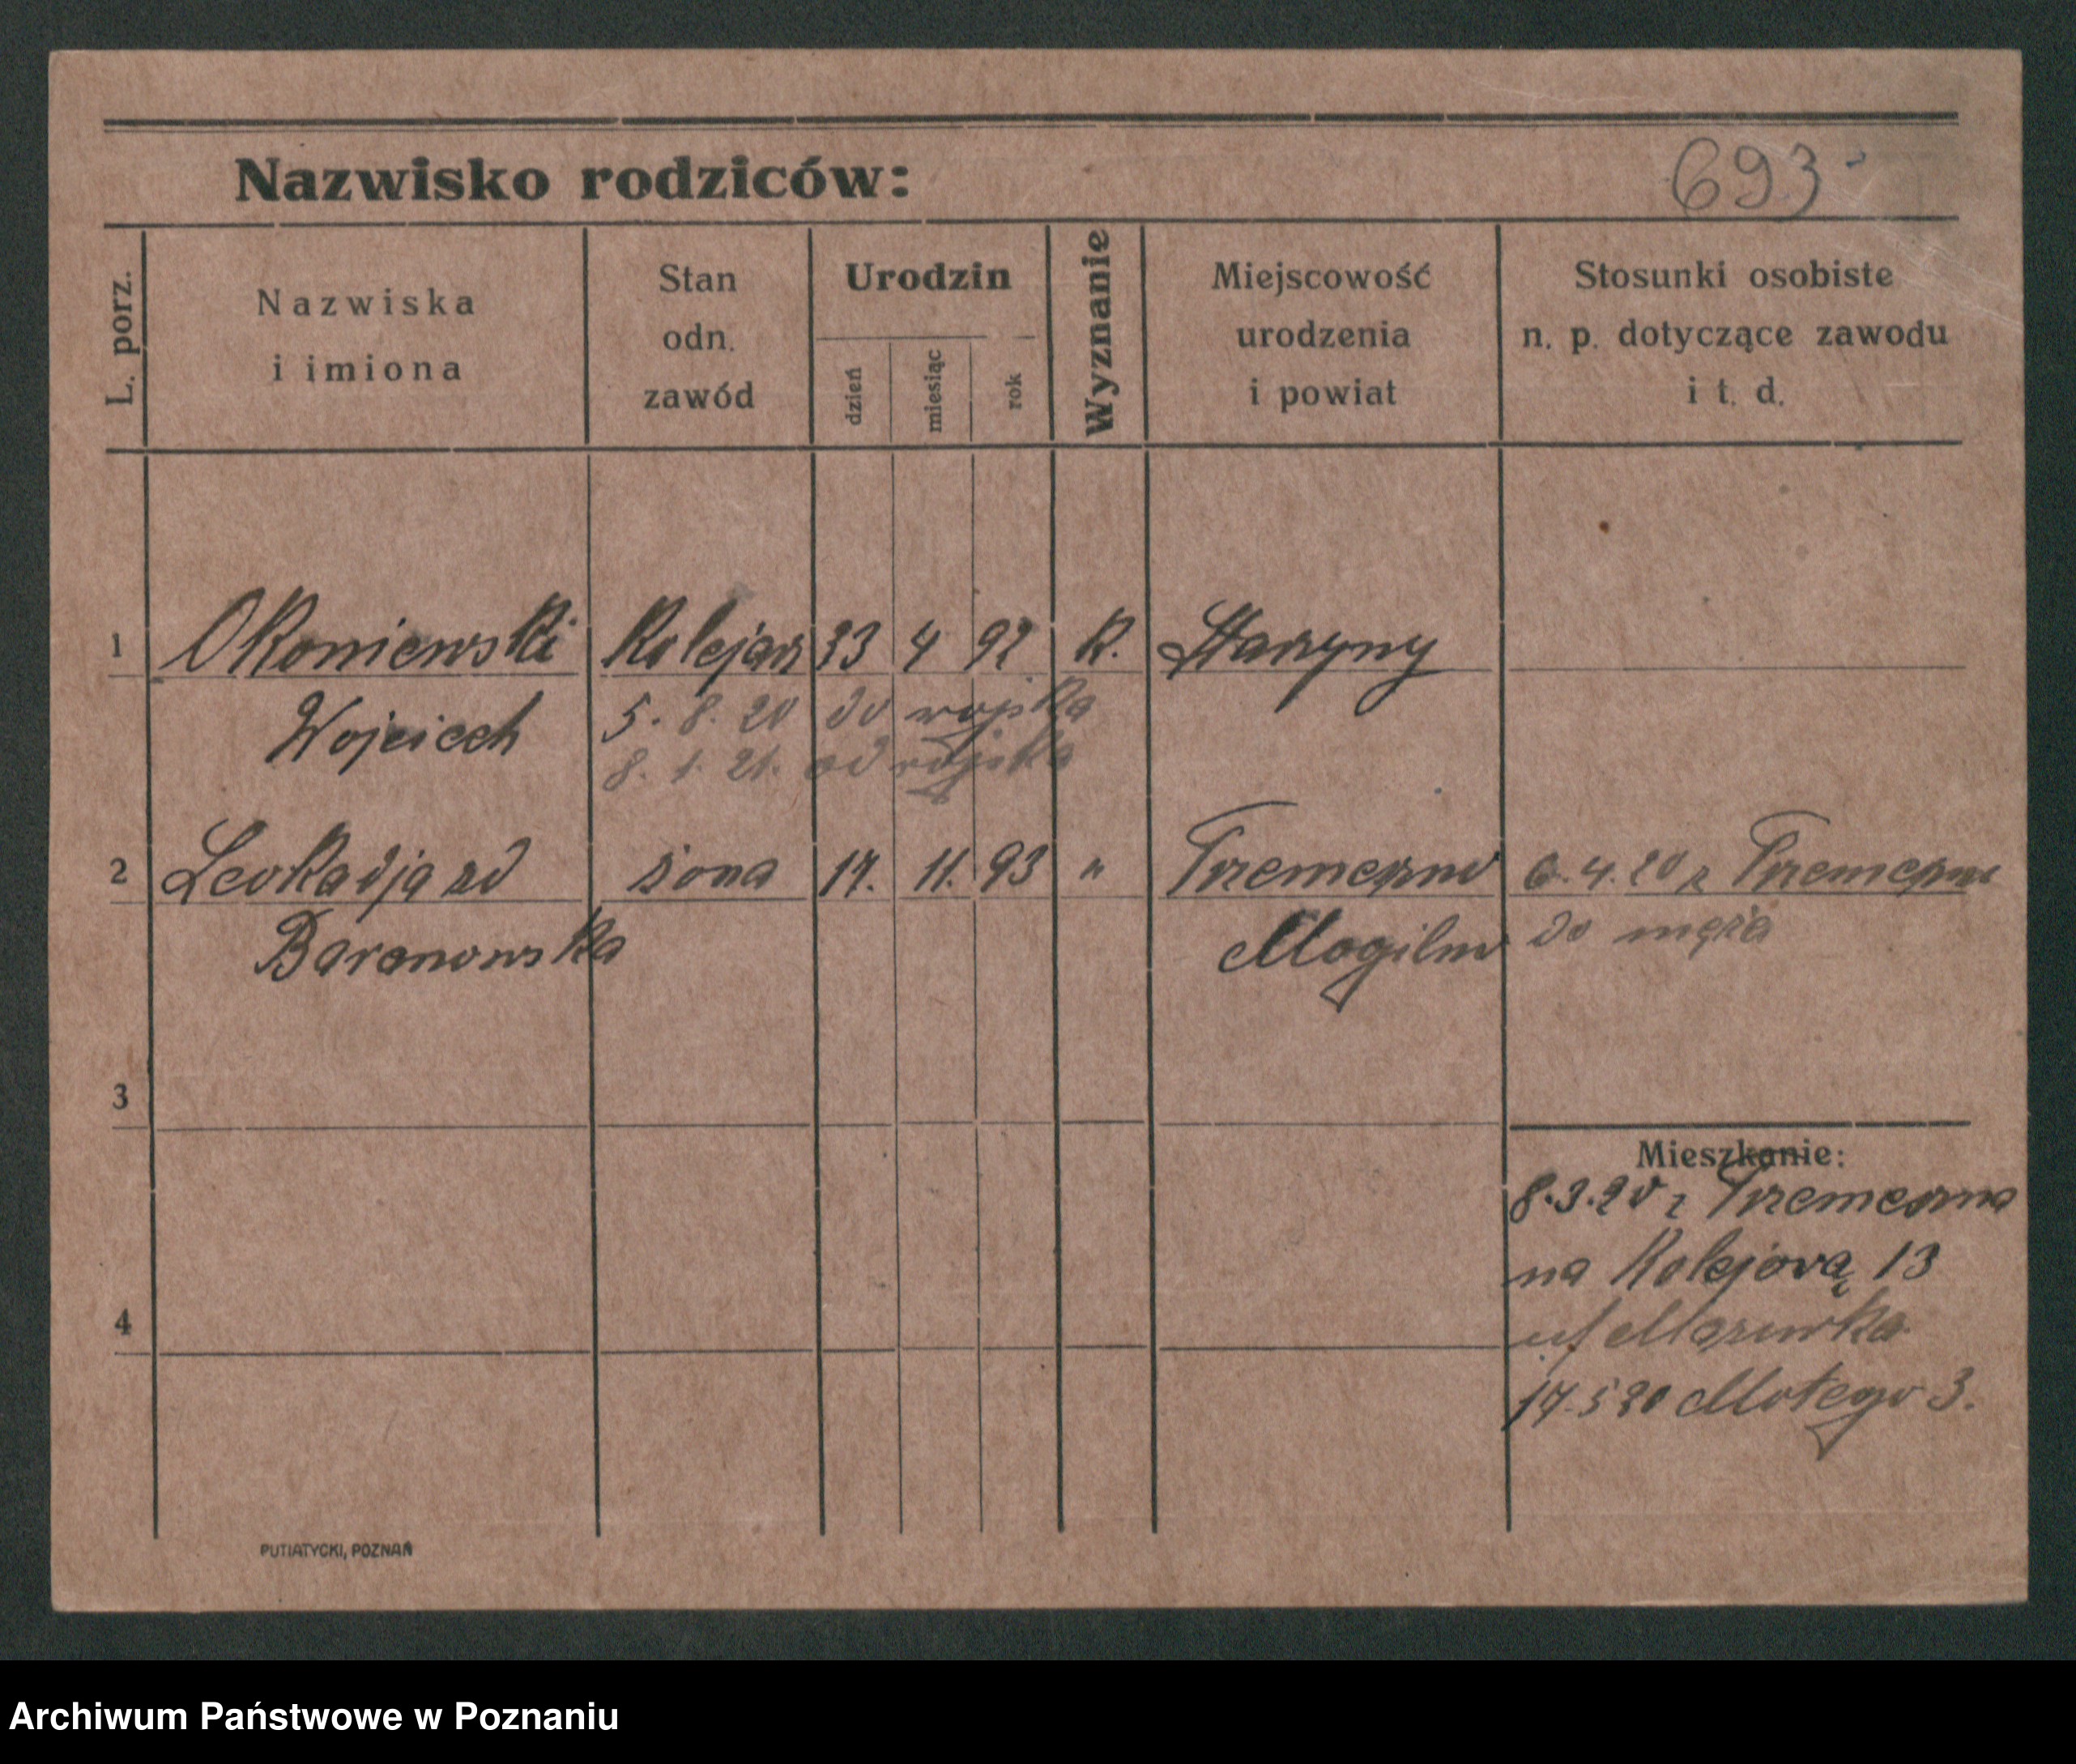 Nazwisko rodziców:
693
L. porz.
Nazwiska
i imiona
Stan
odn.
zawód
Urodzin
dzień
miesiąc
rok
Wyznanie
Miejscowość
urodzenia
i powiat
Stosunki osobiste
n. p. dotyczące zawodu
i t. d.
1 Okoniewski Kolejarz 4 92 K.
Wojciech 5. 8. 20 do wojska
8. 1. 21. od wojska
2 Leokadja zd żona 11. 93 " Trzemeszno 6. 4. 20 z Trzemeszna
Baranowska Mogilno do męża
3
Mieszkanie:
8.3.20 z Trzemeszna
na Kolejową 13
4
3.
PUTIATYCKI, POZNAŃ
Archiwum Państwowe w Poznaniu